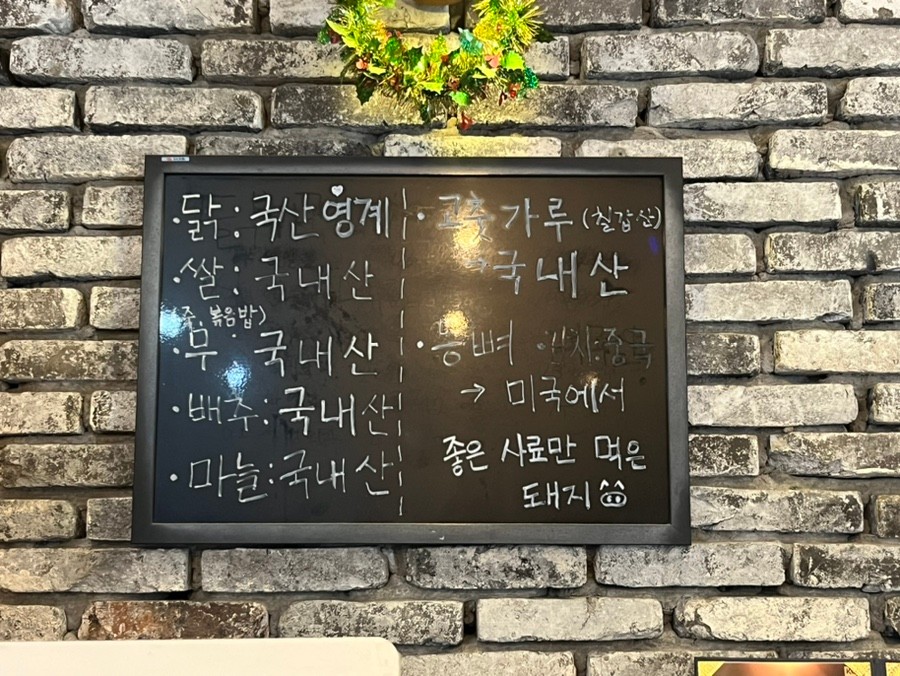 ·닭: 국산 영계
·쌀: 국내산
(죽, 볶음밥)
·무: 국내산
·배추: 국내산
·마늘: 국내산
·고춧가루 (칠갑산)
→국내산
·등뼈
→ 미국에서
좋은 사료만 먹은
돼지